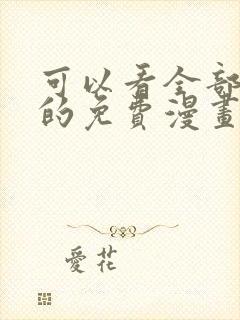 可以看全部
的免費漫畫
愛花